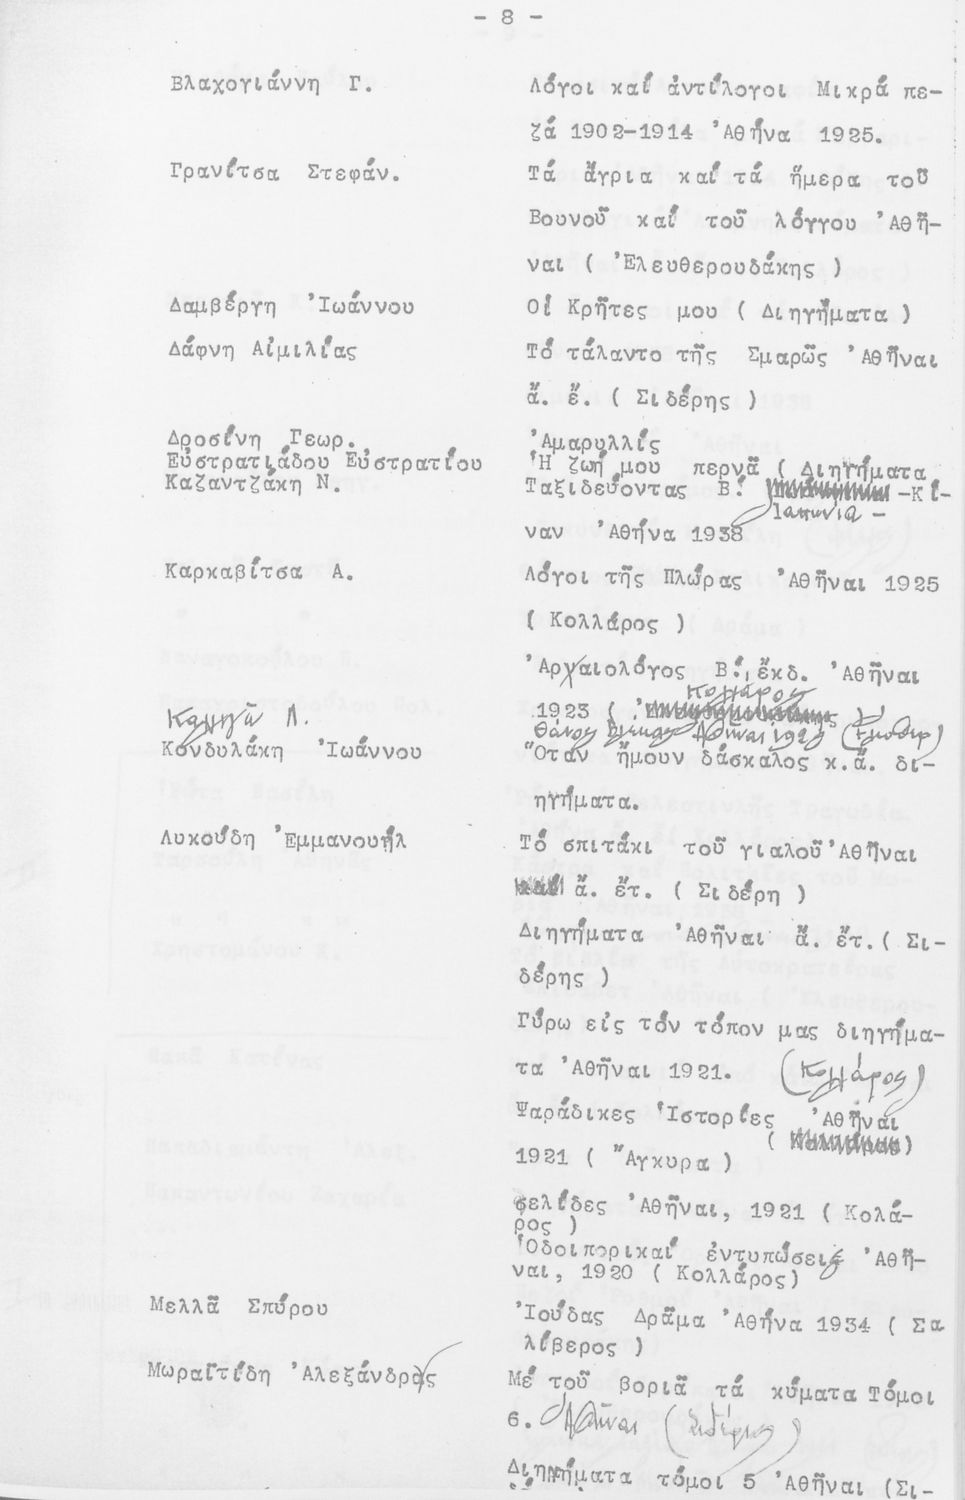 - 8 -
Βλαχογιάννη Γ. Λόγοι καί ἀντίλογοι Μικρά πε-
ζά 1902-1914 Ἀθήνα 1925.
Γρανίτσα Στεφάν. Τά ἄγρια καί τά ἥμερα τοῦ
Βουνοῦ καί τοῦ λόγγου Ἀθῆ-
ναι ( Ἐλευθερουδάκης )
Δαμβέργη Ἰωάννου Οἱ Κρῆτες μου ( Διηγήματα )
Δάφνη Αἰμιλίας Τό τάλαντο τῆς Σμαρῶς Ἀθῆναι
ἄ. ἔ. ( Σιδέρης )
Δροσίνη Γεωρ. Ἀμαρυλλίς
Εὐστρατιάδου Εὐστρατίου Ἡ ζωή μου περνᾶ ( Διηγήματα
Καζαντζάκη Ν. Ταξιδεύοντας Β. -Κί-
Ιαπωνία -
ναν Ἀθήνα 1938
Καρκαβίτσα Α. Λόγοι τῆς Πλώρας Ἀθῆναι 1925
( Κολλάρος )
Ἀρχαιολόγος Β. ἔκδ. Ἀθῆναι
Κολλάρος
1923 ( )
Λ. Θάνος Ἀθῆναι
Κονδυλάκη Ἰωάννου Ὅταν ἤμουν δάσκαλος κ.ἄ. δι-
ηγήματα.
Λυκούδη Ἐμμανουήλ Τό σπιτάκι τοῦ γιαλοῦ Ἀθῆναι
ἄ. ἔτ. ( Σιδέρη )
Διηγήματα Ἀθῆναι ἄ. ἔτ. ( Σι-
δέρης )
Γύρω εἰς τόν τόπον μας διηγήμα-
τα Ἀθῆναι 1921. (Κολλάρος)
Ψαράδικες Ἱστορίες Ἀθῆναι
( )
1921 ( Ἄγκυρα )
σελίδες Ἀθῆναι, 1921 ( Κολά-
ρος )
Ὁδοιπορικαί ἐντυπώσεις Ἀθῆ-
ναι, 1920 ( Κολλάρος)
Μελλᾶ Σπύρου Ἰούδας Δράμα Ἀθήνα 1934 ( Σα
λίβερος )
Μωραϊτίδη Ἀλεξάνδρος Μέ τοῦ βοριᾶ τά κύματα Τόμοι
6. Ἀθῆναι (Σιδέρης)
Διηγήματα τόμοι 5 Ἀθῆναι (Σι-